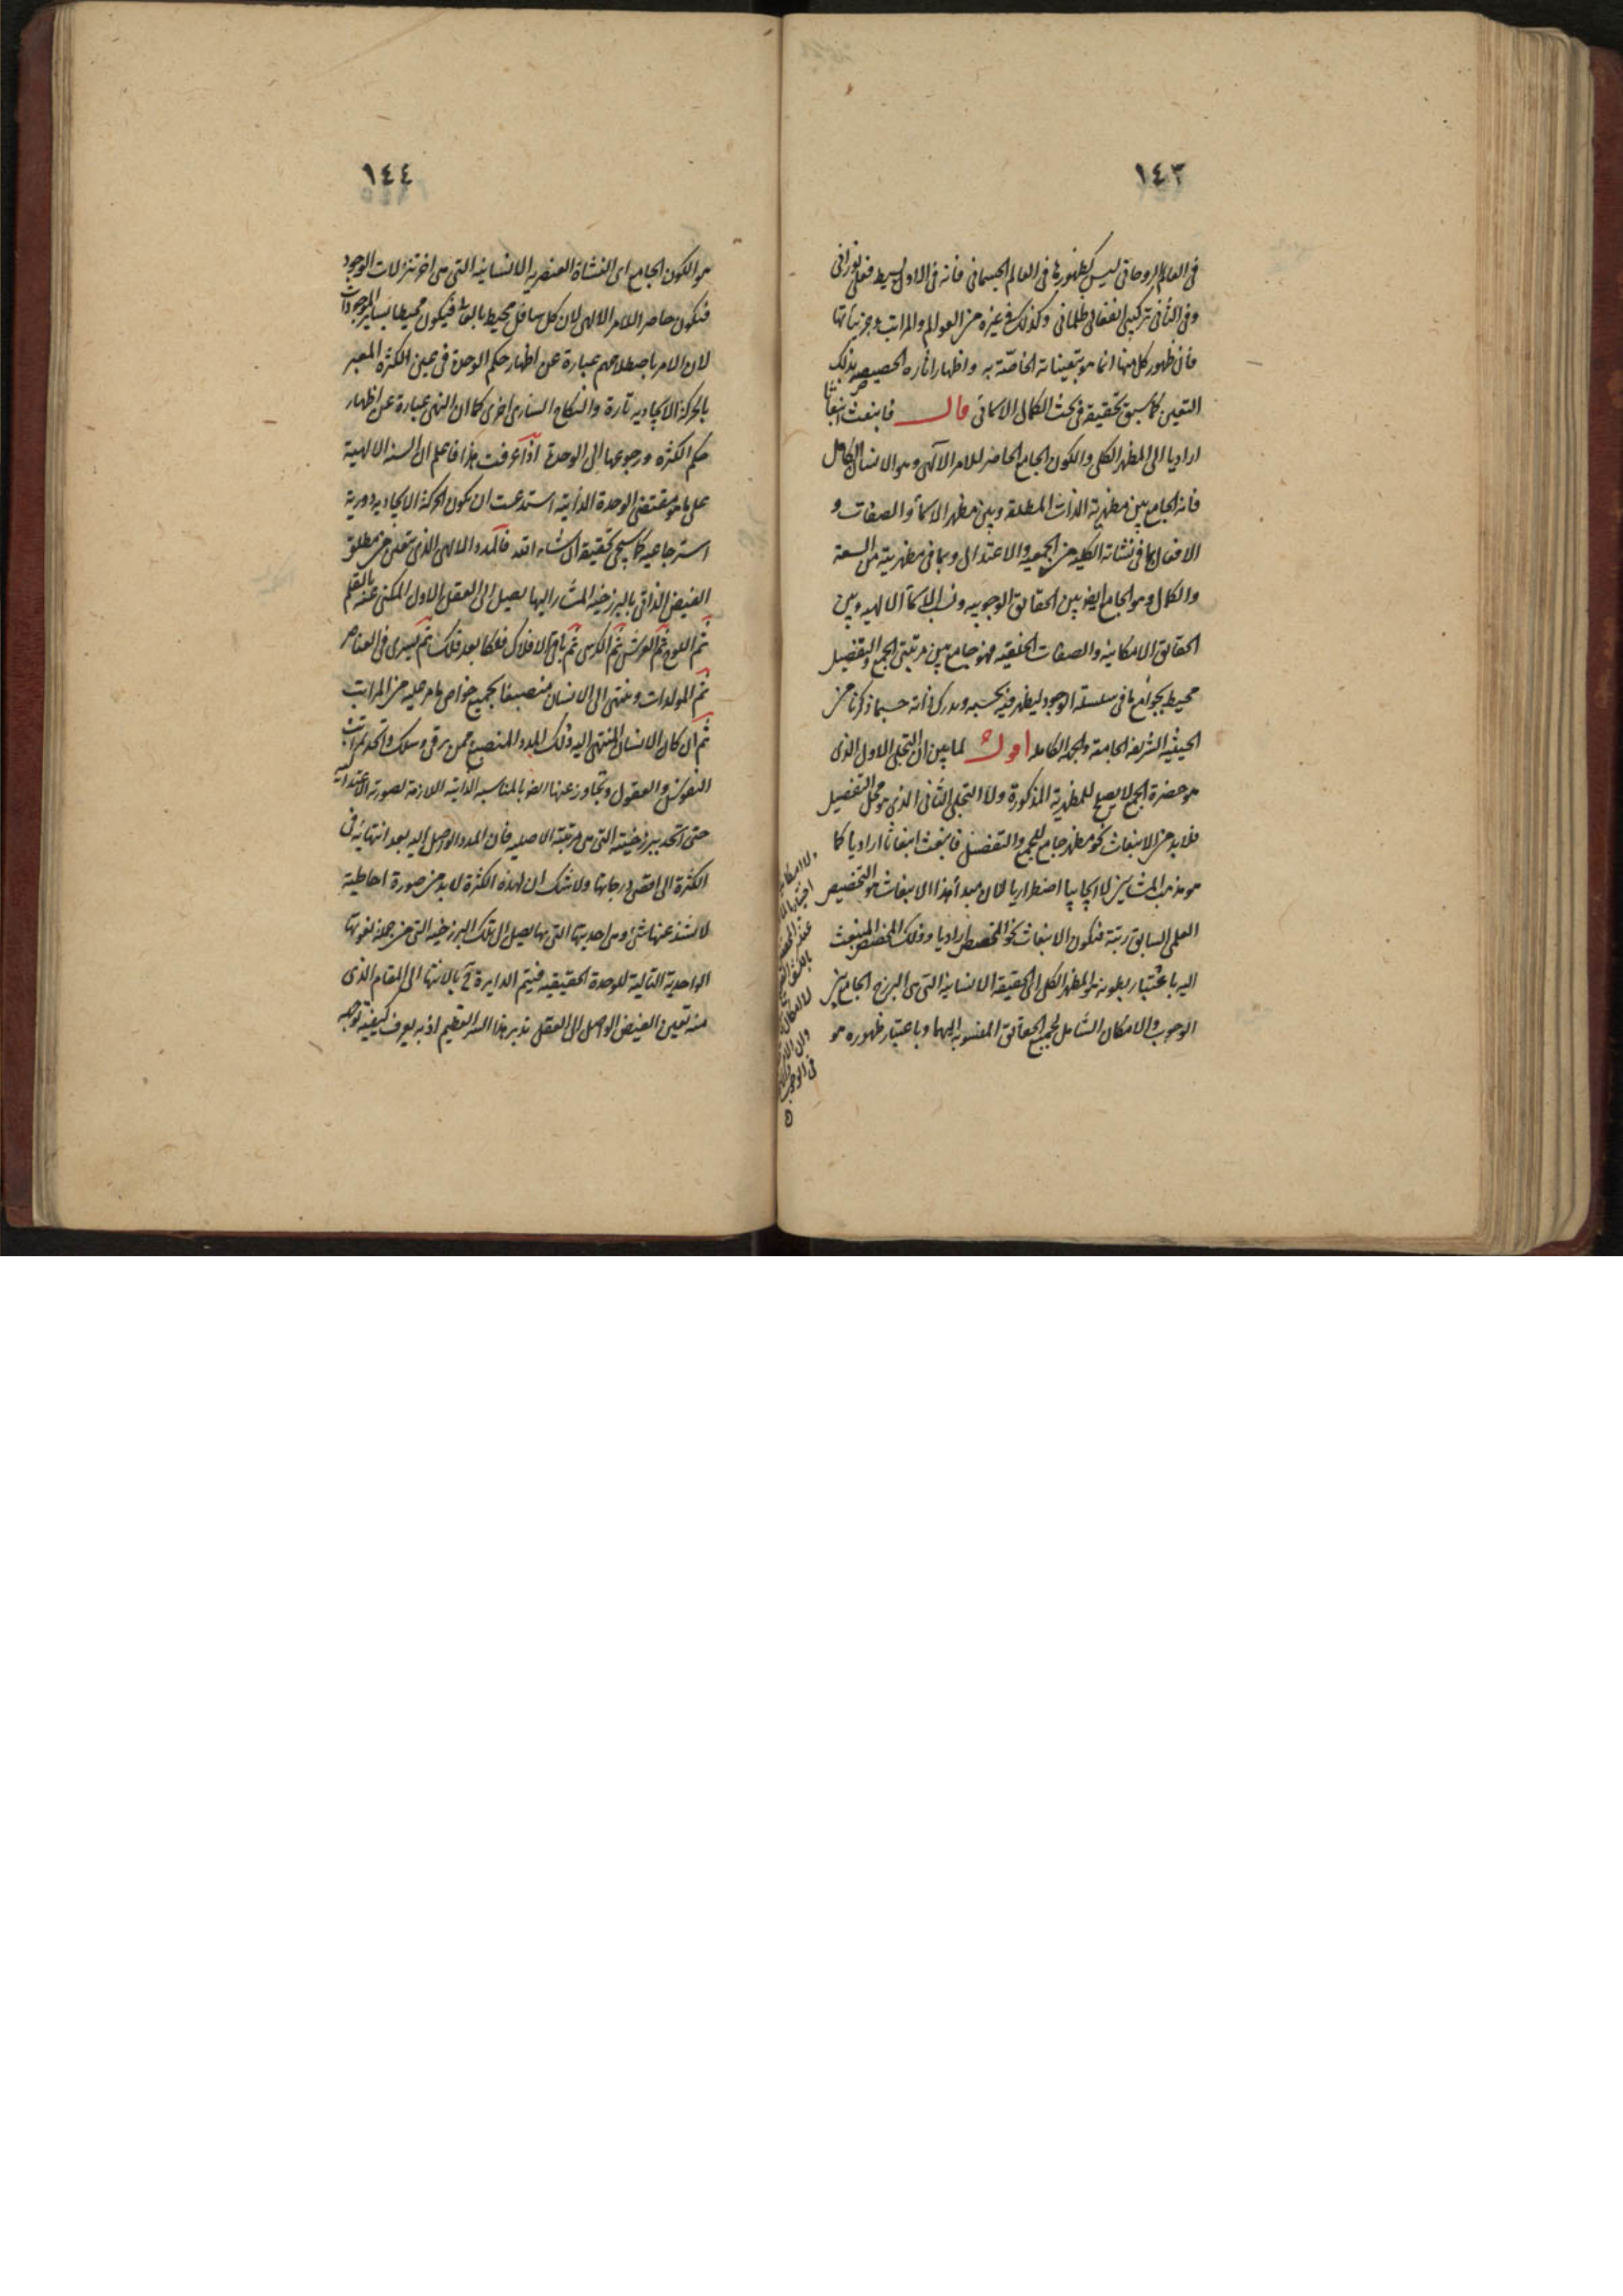 ١٤٣
فى العالم الروحانى ليس كظهورها فى العالم الجسمانى فانه فى الاول بسيط فعلى نورانى
وفى الثانى تركيبى انفعالى ظلمانى وكذلك فى غيره من العوالم والمراتب وجزئياتها
فان ظهور كل منها انما هو بتعيناته الخاصة به واظهار اثاره الخصيصة بذلك
التعين كما سبق تحقيقه فى بحث الكمال الاسمائى قال فانبعث انبعاثا
اراديا الى المظهر الكلى والكون الجامع الحاصر للامر الالهى وهو الانسان الكامل
فانه الجامع بين مظهرية الذات المطلقة وبين مظهر الاسمأ والصفات و
الافعال بما فى نشاته الكلية من الجمعية والاعتدال وبما فى مظهريته من السعة
والكمال وهو الجامع ايضا بين الحقائق الوجوبيه ونسب الاسمأ الالهيه وبين
الحقائق الامكانية والصفات الخلقيه فهو جامع بين مرتبتى الجمع والتفصيل
محيط بجوامع ما فى سلسلة الوجود ليظهر فيه بحسبه ويدرك ذاته حسبما ذكرنا من
الحيثيه الشريفة الجامعة والجهة الكاملة اقول لما بين ان التجلى الاول الذى
هو حضرة الجمع لا يصلح للمظهرية المذكورة ولا التجلى الثانى الذى هو محل التفصيل
فلابد من الانبعاث نحو مظهر جامع للجمع والتفصيل فانبعث انبعاثا اراديا كما
هو مذهب المشائين لا ايجابيا اضطراريا لان مبدأ هذا الانبعاث هو التخصيص
العلمى السابق رتبة فيكون الانبعاث نحو المخصص اراديا وذلك المخصص المنبعث
اليه باعتبار بطونه هو المظهر الكلى الى الحقيقة الانسانية التى هى البرزخ الجامع بين
الوجوب والامكان الشامل لجميع الحقائق المنسوبة اليهما وباعتبار ظهوره هو
١٤٤
هو الكون الجامع اى النشاة العنصرية الانسانية التى هى اخر تنزلات الوجود
فيكون حاصر اللامر الالهى لان كل سافل محيط بالعالى فيكون محيطا بسائر الموجودات
لان الامر باصطلاحهم عبارة عن اظهار حكم الوحدة فى عين الكثرة المعبر
بالحركة الايجاديه تارة والنكاح السارى اخرى كما ان النهى عبارة عن اظهار
حكم الكثرة ورجوعها الى الوحدة اذا عرفت هذا فاعلم ان السنة الالهية
على ما هو مقتضى الوحدة الذاتية استدعت ان يكون الحركة الايجادية دورية
استرجاعيه كما سيجى تحقيقه ان شاء الله فالمدد الالهى الذى يتعين من مطلق
الفيض الذاتى بالبرزخية المشار اليها يصل الى العقل الاول المكنى عنه بالقلم
ثم اللوح ثم العرش ثم الكرسى ثم باقى الافلاك فلكا بعد فلك ثم يسرى فى العناصر
ثم المولدات وينتهى الى الانسان منصبغا بجميع خواص ما مر عليه من المراتب
ثم ان كان الانسان المنتهى اليه ذلك المدد المنصبغ ممن يرقى وسلك واتحد بمراتب
النفوس والعقول وتجاوز عنها ايضا بالمناسبة الذاتية اللازمة لصورته الاعتدالية
حتى اتحد ببرزخيته التى هى مرتبته الاصليه فان المدد الواصل اليه بعد انتهائه فى
الكثرة الى اقصى درجاتها ولا شك ان لهذه الكثرة لابد من صورة احاطية
لا يشذ عنها شئ وهى احديتها التى بها يصل الى تلك البرزخية التى من جملة نعوتها
الواحدية التالية للوحدة الحقيقيه فيتم الدايرة بالانتهاء الى المقام الذى
منه تعين الفيض الواصل الى العقل تدبر هذا السر العظيم اذ به يعرف كيفية توجه